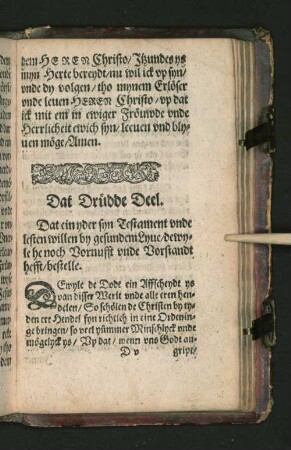 dem HEREN Christo / Itzundes ys
myn Herte bereydt / nu wil ick vp syn /
vnde dy volgen / tho mynem Erlöser
vnde leuen HEREN Christo / vp dat
ick mit em in ewiger Fröuwde vnde
Herrlicheit ewich syn / leeuen vnd bly-
uen möge / Amen.
Dat Drüdde Deel.
Dat ein yder syn Testament vnde
lesten willen by gesundem Lyue / dewy-
le he noch Vornufft vnde Vorstandt
hefft / bestelle.
DEwyle de Dodt ein Affscheydt ys
van disser Werlt vnde alle eren hen-
delen / So schölen de Christen by ty-
den ere Hendel syn richtich in eine Ordenin-
ge bringen / so veel yümmer Minschlyck vnde
mögelyck ys / Vp dat / wenn vns Godt an-
D v gript /